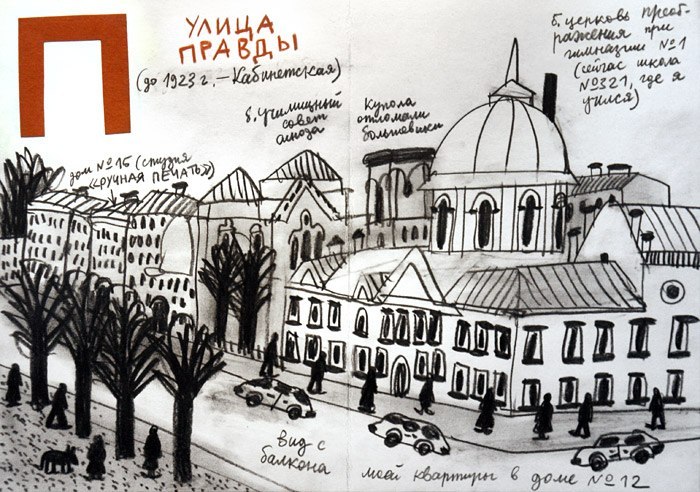 П
УЛИЦА
ПРАВДЫ
(до 1923 г. – Кабинетская)
б. церковь преоб-
ражения при
гимназии №1
(сейчас школа
№321, где я
учился)
б. Училищный
совет
синода
Купола
отломали
большевики
дом №16 (студия
«РУЧНАЯ ПЕЧАТЬ»)
вид с
балкона
моей квартиры в доме №12